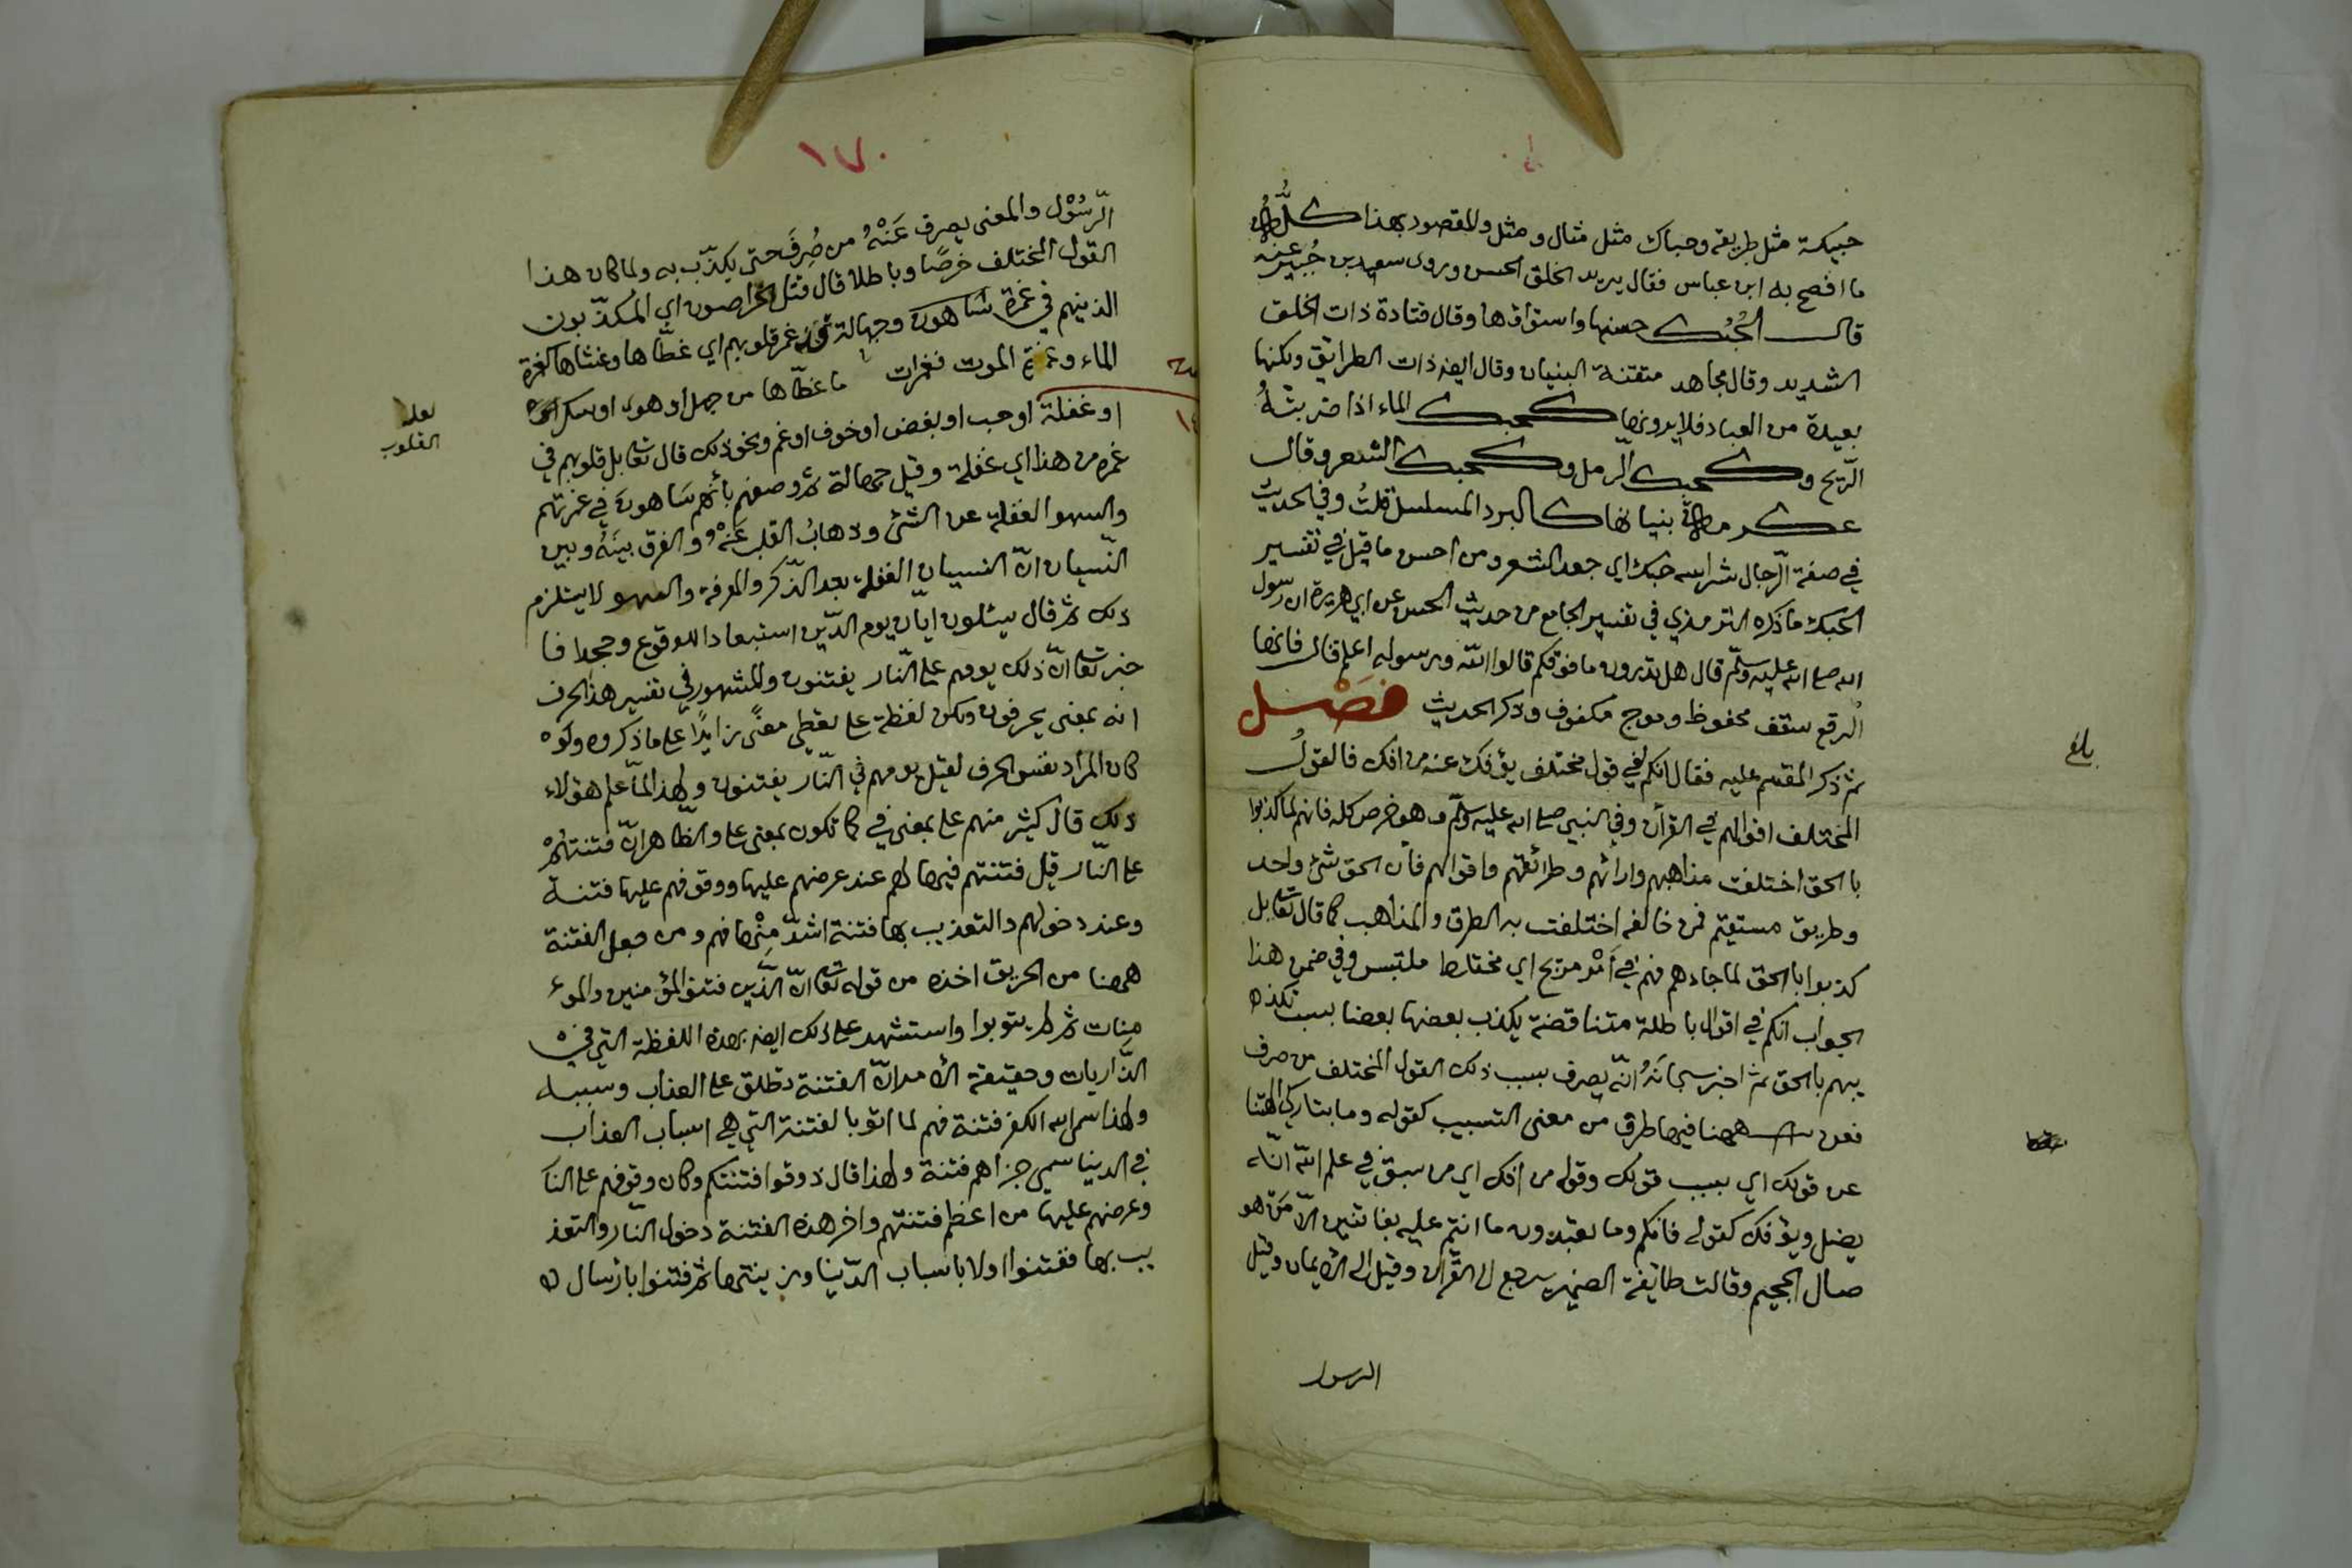 حبيكة مثل طريقة وحباك مثل مثال ومثل والمقصود بهذا كله
ما افصح به ابن عباس فقال يريد الخلق الحسن وروى سعيد بن جُبير عنه
قال الحُبُك حسنها واستواؤها وقال قتادة ذات الخلق
الشديد وقال مجاهد متقنة البنيان وقال ايضا ذات الطرائق ولكنها
بعيدة من العباد فلا يرونها كحبك الماء اذا ضربتهُ
الرّيح وكحبك الرمل وكحبك الشعر وقال
عكرمة بنيانها كالبرد المسلسل قلتُ وفي الحديث
في صفة الدّجال شراسه حبك اي جعد الشعر ومن احسن ما قيل في تفسير
الحبك ما ذكره الترمذي في تفسير الجامع من حديث الحسن عن ابي هريرة ان رسول
الله صلى الله عليه وسلّم قال هل تدرون ما فوقكم قالوا الله ورسوله اعلم قال فانها
الرقع سقف محفوظ وموج مكفوف وذكر الحديث فَصْل
ثم ذكر المقسم عليه فقال انكم لفي قول مختلف يؤفك عنه من افك فالقولُ
المختلف اقوالهم في القرآن وفي النبي صلى الله عليه وسلّم وهو خرص كله فانهم لما كذبوا
بالحق اختلفت مذاهبهم وارائهم وطرائقهم واقوالهم فأن الحق شئ واحد
وطريق مستقيم فمن خالفه اختلفت به الطرق والمذاهب كما قال تعا بل
كذبوا بالحق لما جاءهم فهم في أَمْر مريج اي مختلط ملتبس وفي ضمن هذا
الجواب انكم في اقوال باطلة متناقضة يكذب بعضها بعضا بسبب تكذ
يبهم بالحق ثم اخبر سبحانَهُ انّه يصرف بسبب ذلك القول المختلف من صرف
فعن ههنا فيها طرق من معنى التسبيب كقوله وما بتاركي الهتنا
عن قولك اي بسبب قولك وقوله من افك اي من سبق في علم الله انّه
يضل ويؤفك كقوله فانكم وما تعبدون ما انتم عليه بفاتنين الاّ مَنْ هو
صال الجحيم وقالت طائفة الضمير يرجع الى القرآن وقيل الى الايمان وقيل
الرسول
بلغ
١٧٠
الرّسُوْل والمعنى يصرف عَنْهُ من صُرِفَ حتى يكذّب به ولما كان هذا
القول المختلف خرصًا وباطلا قال قتل الخراصون اي المكذّبون
الذينهم في غمرة ساهون وجهالة غمر قلوبهم اي غطّاها وغشاها كغمرة
الماء وغمرة الموت فغمرات ما غطّاها من جهل او هوى او سكر
او غفلة او حب او بغض او خوف او غم ونحو ذلك قال تعا بل قلوبهم في
غمرة من هذا اي غفلة وقيل جهالة ثم وصفهم بأنهم سَاهون في غمرتهم
والسهو الغفلة عن الشئ وذهابُ القلب عَنْهُ والفرق بينَهُ وبين
النّسيان انّ النسيان الغفلة بعد الذّكر والمعرفة والسهو لا يستلزم
ذلك ثم قال يسئلون ايّان يوم الدّين استبعادا للوقوع وجحدا فا
خبر تعا انّ ذلك يومهم على النّار يفتنون والمشهور في تفسير هذا الحرف
انه بمعنى يحرقون ولكن لفظة على تعطي معنًى زايدًا على ما ذكروه ولو
كان المراد نفس الحرف لقيل يومهم في النّار يفتنون ولهذا لمّا علم هؤلاء
ذلك قال كثير منهم على بمعنى في كما تكون بمعنى على والظّاهر انّ فتنتهُمْ
على النّار قبل فتنتهم فيها لهم عند عرضهم عليها ووقوفهم عليها فتنة
وعند دخولهم والتعذيب بها فتنة اشدّ مِنْها فهم ومن جعل الفتنة
ههنا من الحريق اخذه من قوله تعا انّ الذين فتنوا المؤمنين والمو
منات ثم لم يتوبوا واستشهد على ذلك ايضا بهذه اللفظة التي في
الذّاريات وحقيقة الأمر انّ الفتنة تطلق على العذاب وسببه
ولهذا سمى الله الكفر فتنة فهم لما اتو بالفتنة التي هي اسباب العذاب
في الدنيا سمي جزاهم فتنة ولهذا قال ذوقوا فتنتكم وكان وقوفهم على النا
وعرضهم عليها من اعظم فتنتهم واخر هذه الفتنة دخول النّار والتعذ
يب بها ففتنوا اولا باسباب الدّنيا وزينتها ثم فتنوا بارسال
لعله
القلوب